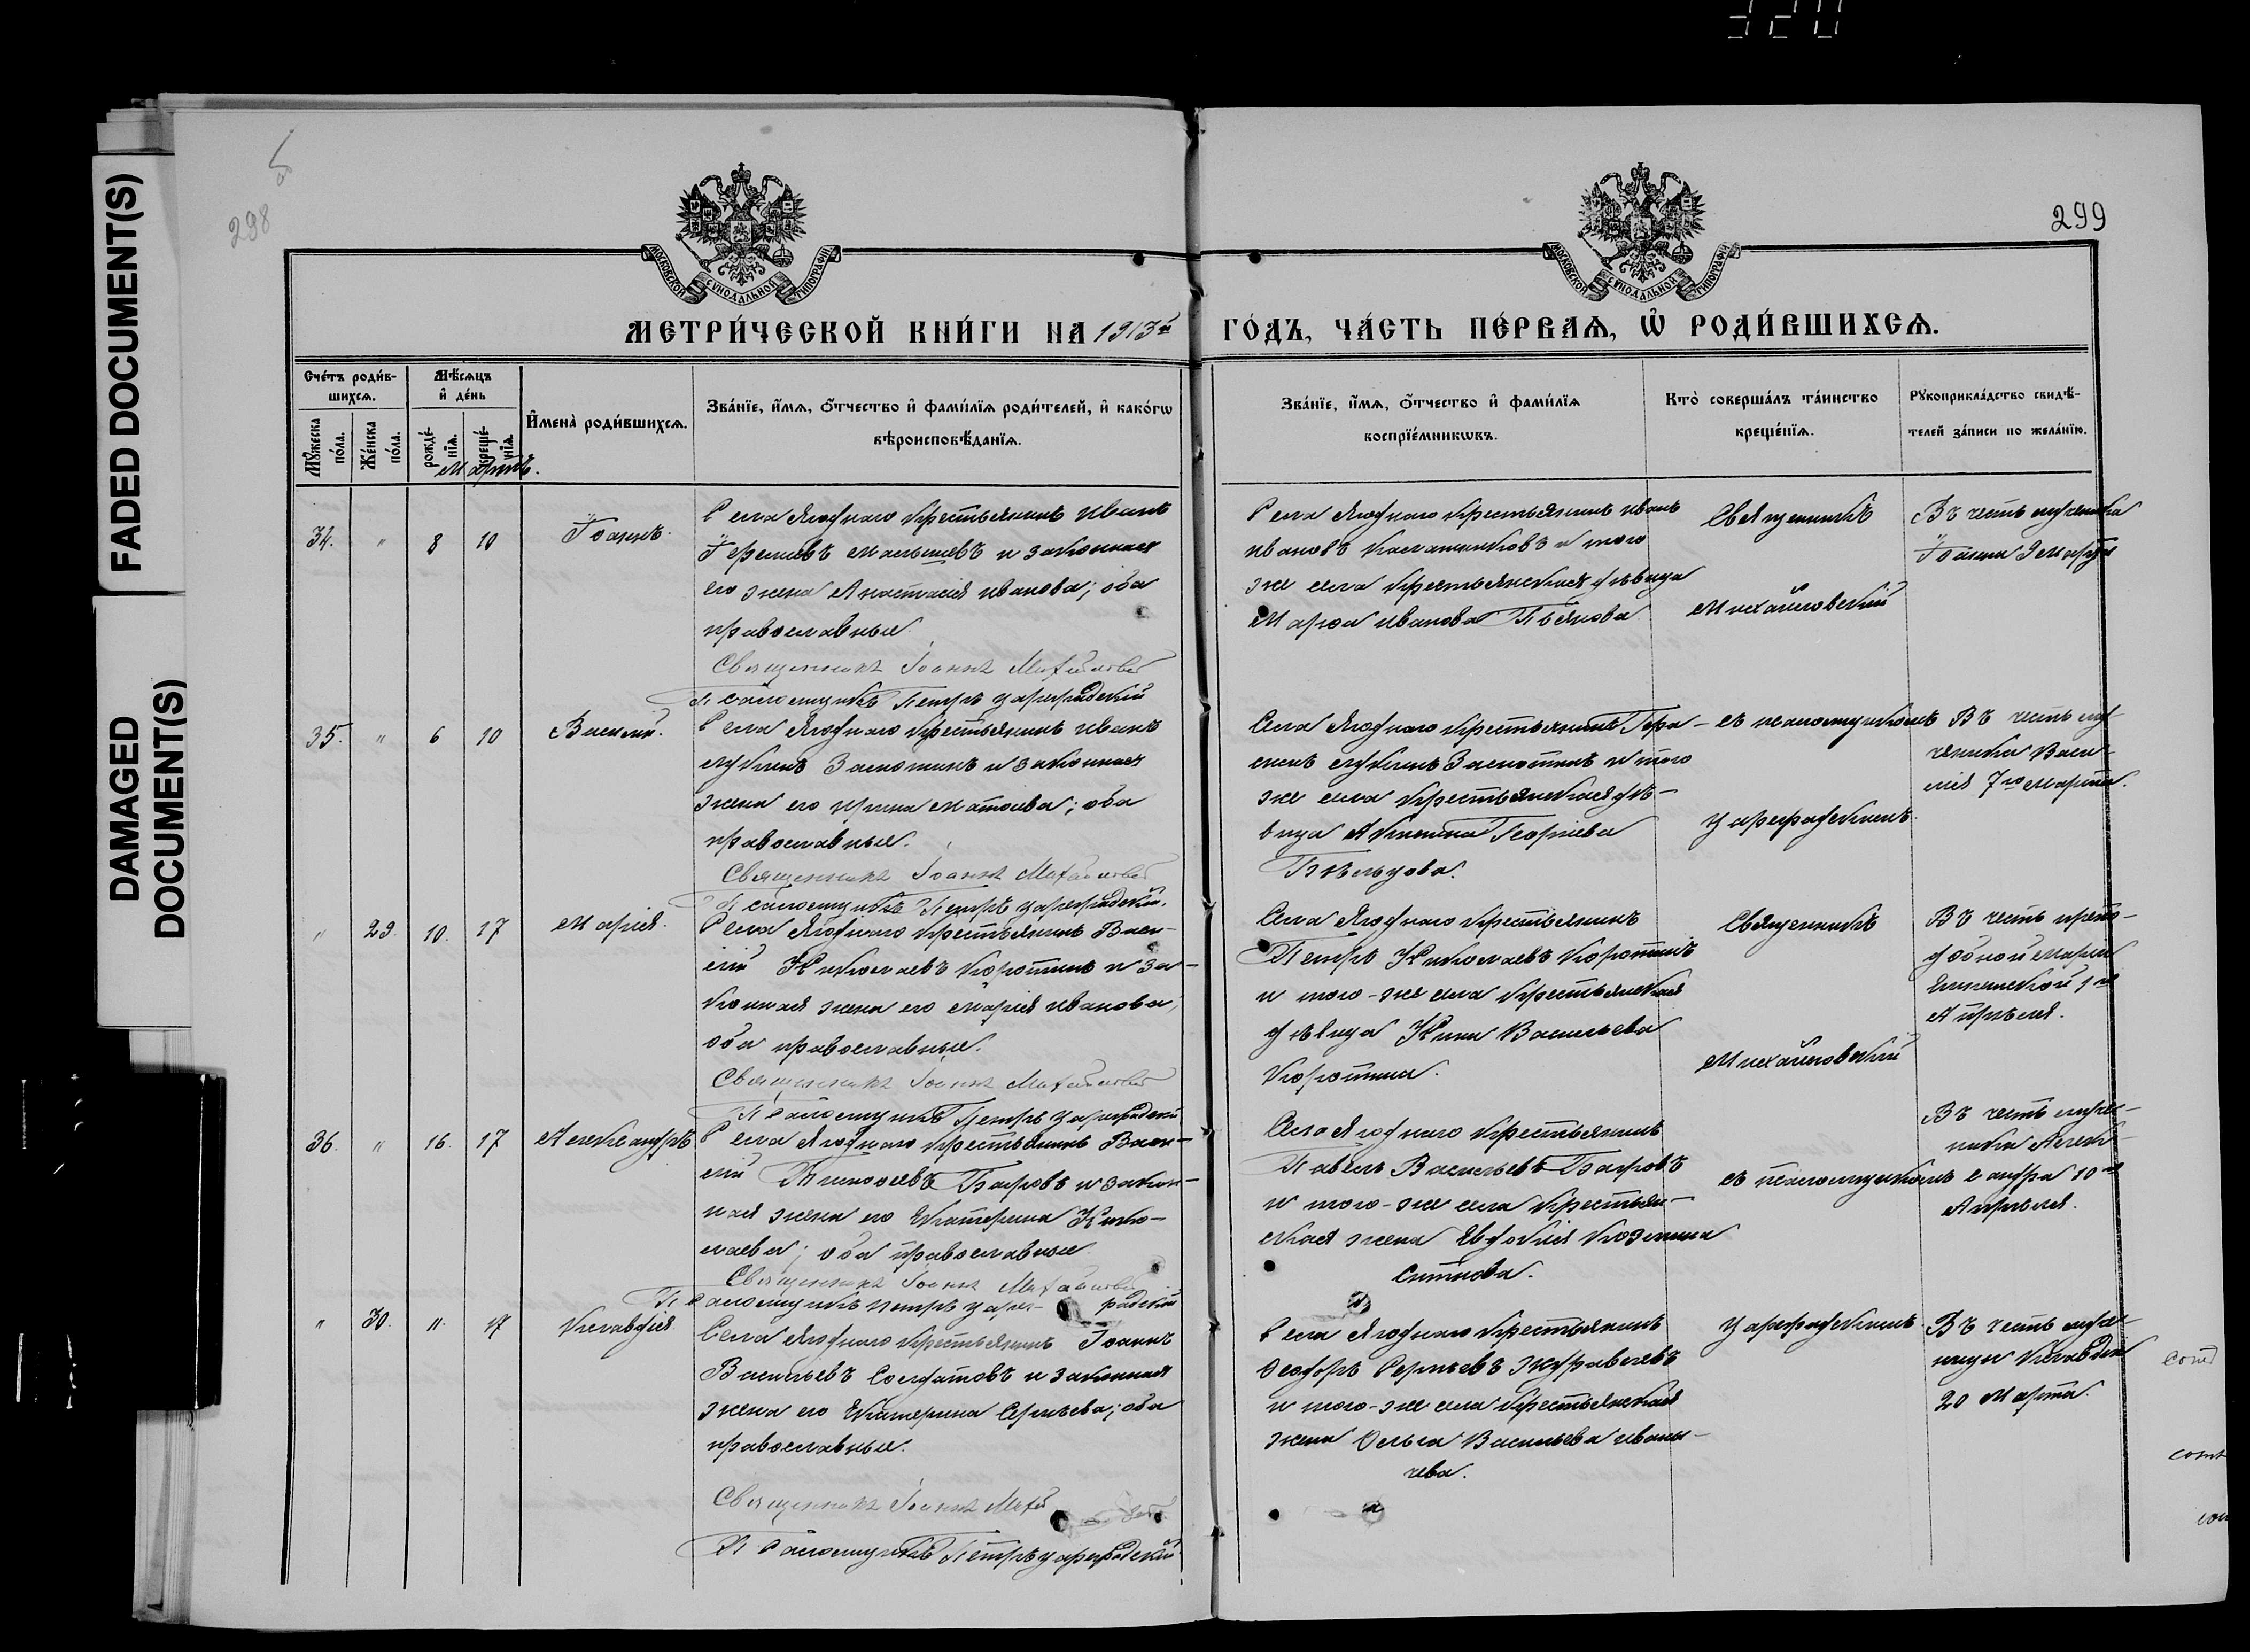 320
FADED DOCUMENT(S)
DAMAGED DOCUMENT(S)
298
299
МОСКОВСКОЙ СѴНОДАЛЬНОЙ ТИПОГРАФІИ
МОСКОВСКОЙ СѴНОДАЛЬНОЙ ТИПОГРАФІИ
МЕТРИ́ЧЕСКОЙ КНИ́ГИ НА 1913й ГО́ДЪ, ЧА́СТЬ ПЕ́РВАѦ, Ѡ҆ РОДИ́ВШИХСѦ.
Сче́тъ роди́в-
шихсѧ.
Мꙋ́жеска по́ла.
Же́нска по́ла.
Мѣ́сѧцъ
и҆ де́нь
рожде́-
нїѧ.
креще́-
нїѧ
И҆мена̀ роди́вшихсѧ.
Зва́нїе, и҆́мѧ, ѻ҆́тчество и҆ фами́лїѧ роди́телей, и҆ како́гѡ
вѣроисповѣ́данїѧ.
Зва́нїе, и҆́мѧ, ѻ҆́тчество и҆ фами́лїѧ
воспрїе́мникѡвъ.
Кто̀ соверша́лъ та́инство
креще́нїѧ.
Рꙋкоприкла́дство свидѣ́-
телей за́писи по жела́нїю.
Мартъ.
34. " 8 10 Іоаннъ.
Села Ягоднаго крестьянинъ Иванъ
Малышевъ и законная
его жена Анастасія Иванова; оба
православные
Священникъ Іоаннъ Михайловскій
Псаломщикъ Петръ Цареградскій
Села Ягоднаго крестьянинъ Иванъ
Ивановъ и того
же села крестьянская дѣвица
Марѳа Иванова Пьянова
Священникъ
Михайловскій
Въ честь мученика
Іоанна Марта
35. " 6 10 Василій.
Села Ягоднаго крестьянинъ Иванъ
Лукинъ и законная
жена его Ирина Матѳеева; оба
православные.
Священникъ Іоаннъ Михайловскій
Псаломщикъ Петръ Цареградскій.
Села Ягоднаго крестьянинъ Гера-
симъ Лукинъ и того
же села крестьянская дѣ-
вица Акилина Георгіева
съ псаломщикомъ
Цареградскимъ.
Въ честь му-
ченика Васи-
лія 7го Марта.
" 29. 10. 17 Марія.
Села Ягоднаго крестьянинъ Васи-
лій Николаевъ Коротинъ и за-
конная жена его Марія Иванова,
оба православные.
Священникъ Іоаннъ Михайловскій
Псаломщикъ Петръ Цареградскій
Села Ягоднаго крестьянинъ
Петръ Николаевъ Коротинъ
и того-же села крестьянская
дѣвица Нина Васильева
Коротина.
Священникъ
Михайловскій
Въ честь препо-
добной Маріи
Египетской 1го
Апрѣля.
36. " 16. 17 Александръ
Села Ягоднаго крестьянинъ Васи-
лій Тимоѳеевъ Баировъ и закон-
ная жена его Екатерина Нико-
лаева; оба православные
Священникъ Іоаннъ Михайловскій
Псаломщикъ Петръ Царег- радскій
Села Ягоднаго крестьянинъ
Павелъ Васильевъ Баировъ
и того-же села крестьян-
ская жена Евдокія Козьмина
Ситнова.
съ псаломщикомъ
Въ честь муче-
ника Алек-
сандра 10го
Апрѣля.
" 30. 11. 17 Клавдія
Села Ягоднаго крестьянинъ Іоаннъ
Васильевъ Солдатовъ и законная
жена его Екатерина Сергѣева; оба
православные.
Священникъ Іоаннъ
Псаломщикъ Петръ Цареградскій
Села Ягоднаго крестьянинъ
Ѳеодоръ Сергѣевъ Журавлевъ
и того-же села крестьянская
жена Ольга Васильева Иваны-
чева.
Цареградскимъ.
Въ честь муче-
ницы Клавдіи
20 Марта.